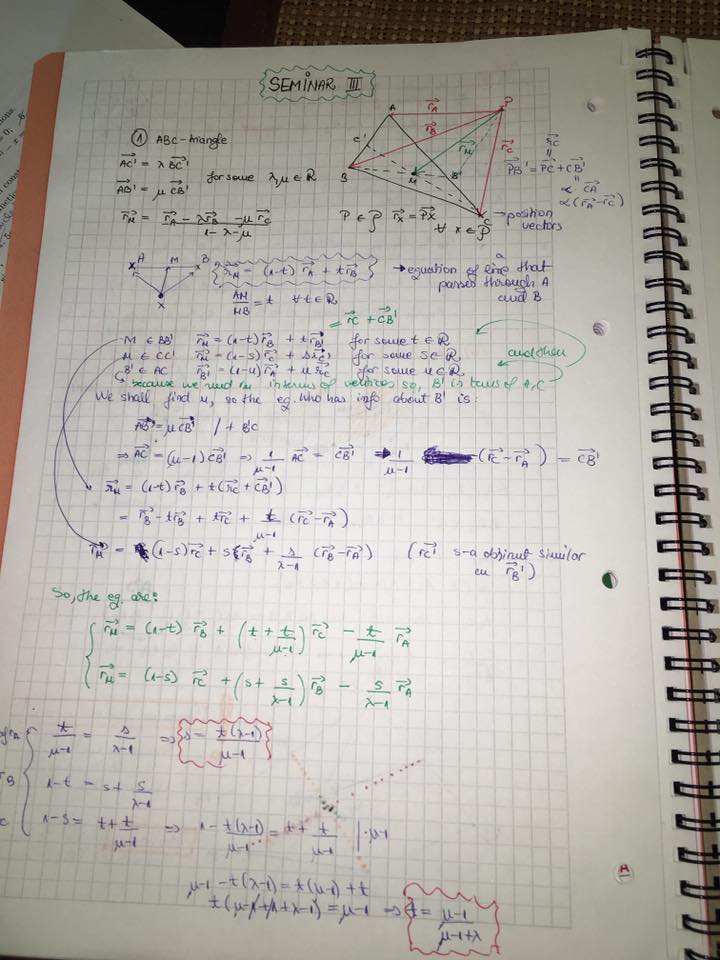 SEMINAR III
① ABC-triangle
AC' = λ BC'
AB' = μ CB'
for some λ, μ ∈ R
r_M = (r_A - λr_B - μ r_C) / (1-λ-μ)
A
B
C
C'
B'
M
P
r_A
r_B
r_M
r_C
r_C
PB' = PC + CB'
α CA
α(r_A - r_C)
P ∈ P r_X = PX ∀ X ∈ P
→ position vectors
A M B
X
r_M = (1-t) r_A + t r_B
→ equation of a line that
passes through A
and B
AM/MB = t ∀ t ∈ R
= r_C + CB'
M ∈ BB' r_M = (1-t) r_B + t r_B' for some t ∈ R
M ∈ CC' r_M = (1-s) r_C + s r_C' for some s ∈ R
and then
B' ∈ AC r_B' = (1-u) r_A + u r_C for some u ∈ R
because we need r_M in terms of vertices so, B' in terms of A, C
We shall find u, so the eq. who has info about B' is:
AB' = μ CB' / + B'C
⇒ AC = (μ-1) CB' ⇒ 1/(μ-1) AC = CB' ⇒ 1/(μ-1) (r_C - r_A) = CB'
r_M = (1-t) r_B + t (r_C + CB')
= r_B - t r_B + t r_C + t/(μ-1) (r_C - r_A)
r_M = (1-s) r_C + s r_B + s/(λ-1) (r_B - r_A) (r_C' s-a obținut similar
cu r_B')
So, the eq. are:
r_M = (1-t) r_B + (t + t/(μ-1)) r_C - t/(μ-1) r_A
r_M = (1-s) r_C + (s + s/(λ-1)) r_B - s/(λ-1) r_A
t/(μ-1) = s/(λ-1) ⇒ s = t(λ-1)/(μ-1)
1-t = s + s/(λ-1)
1-s = t + t/(μ-1) ⇒ 1 - t(λ-1)/(μ-1) = t + t/(μ-1) | · μ-1
μ-1 - t(λ-1) = t(μ-1) + t
t(μ-1+1+λ-1) = μ-1 ⇒ t = (μ-1)/(μ-1+λ)